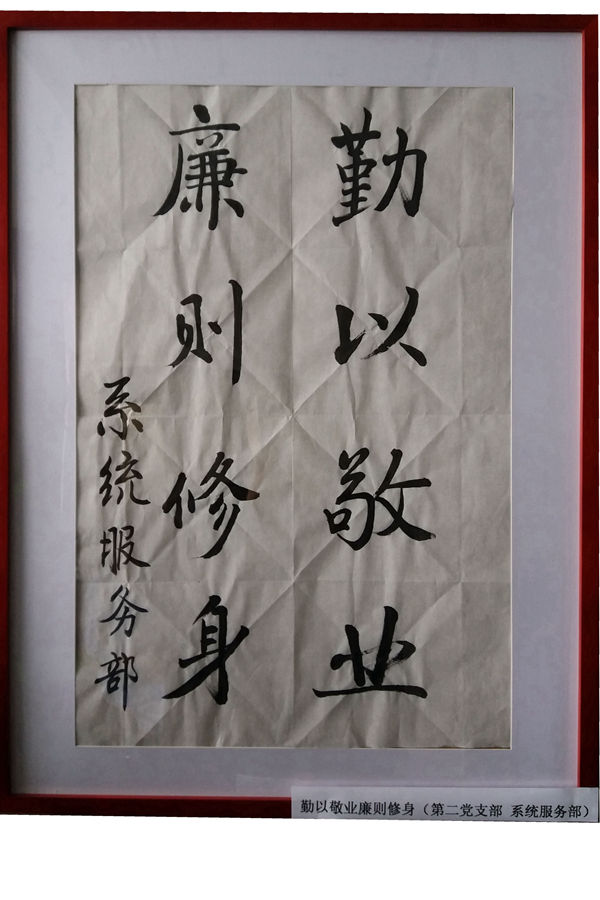 勤以敬业
廉则修身
系统服务部
勤以敬业廉则修身（第二党支部 系统服务部）